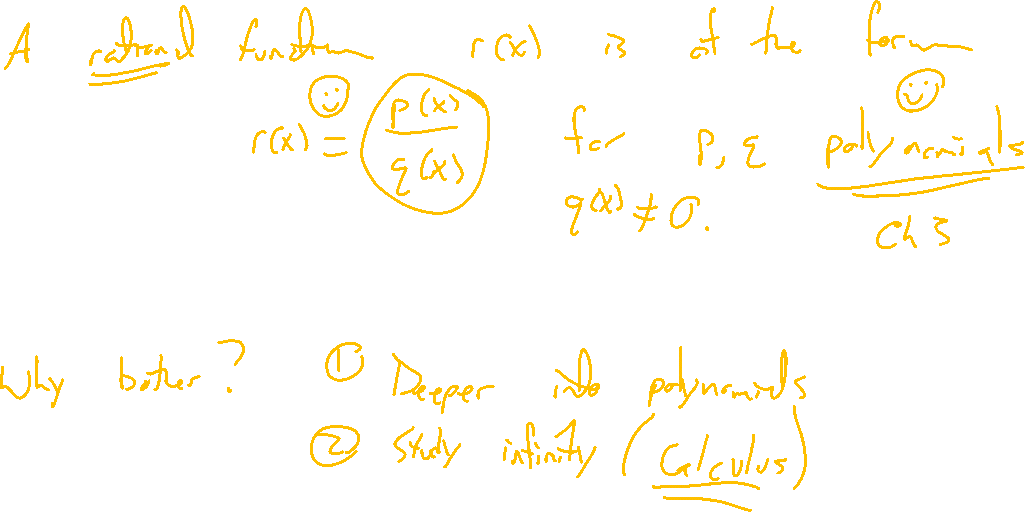 A rational function r(x) is of the form
r(x) = p(x)/q(x) for p, q polynomials
q(x) ≠ 0.
Ch 3
Why bother? ① Deeper into polynomials
② Study infinity (Calculus)